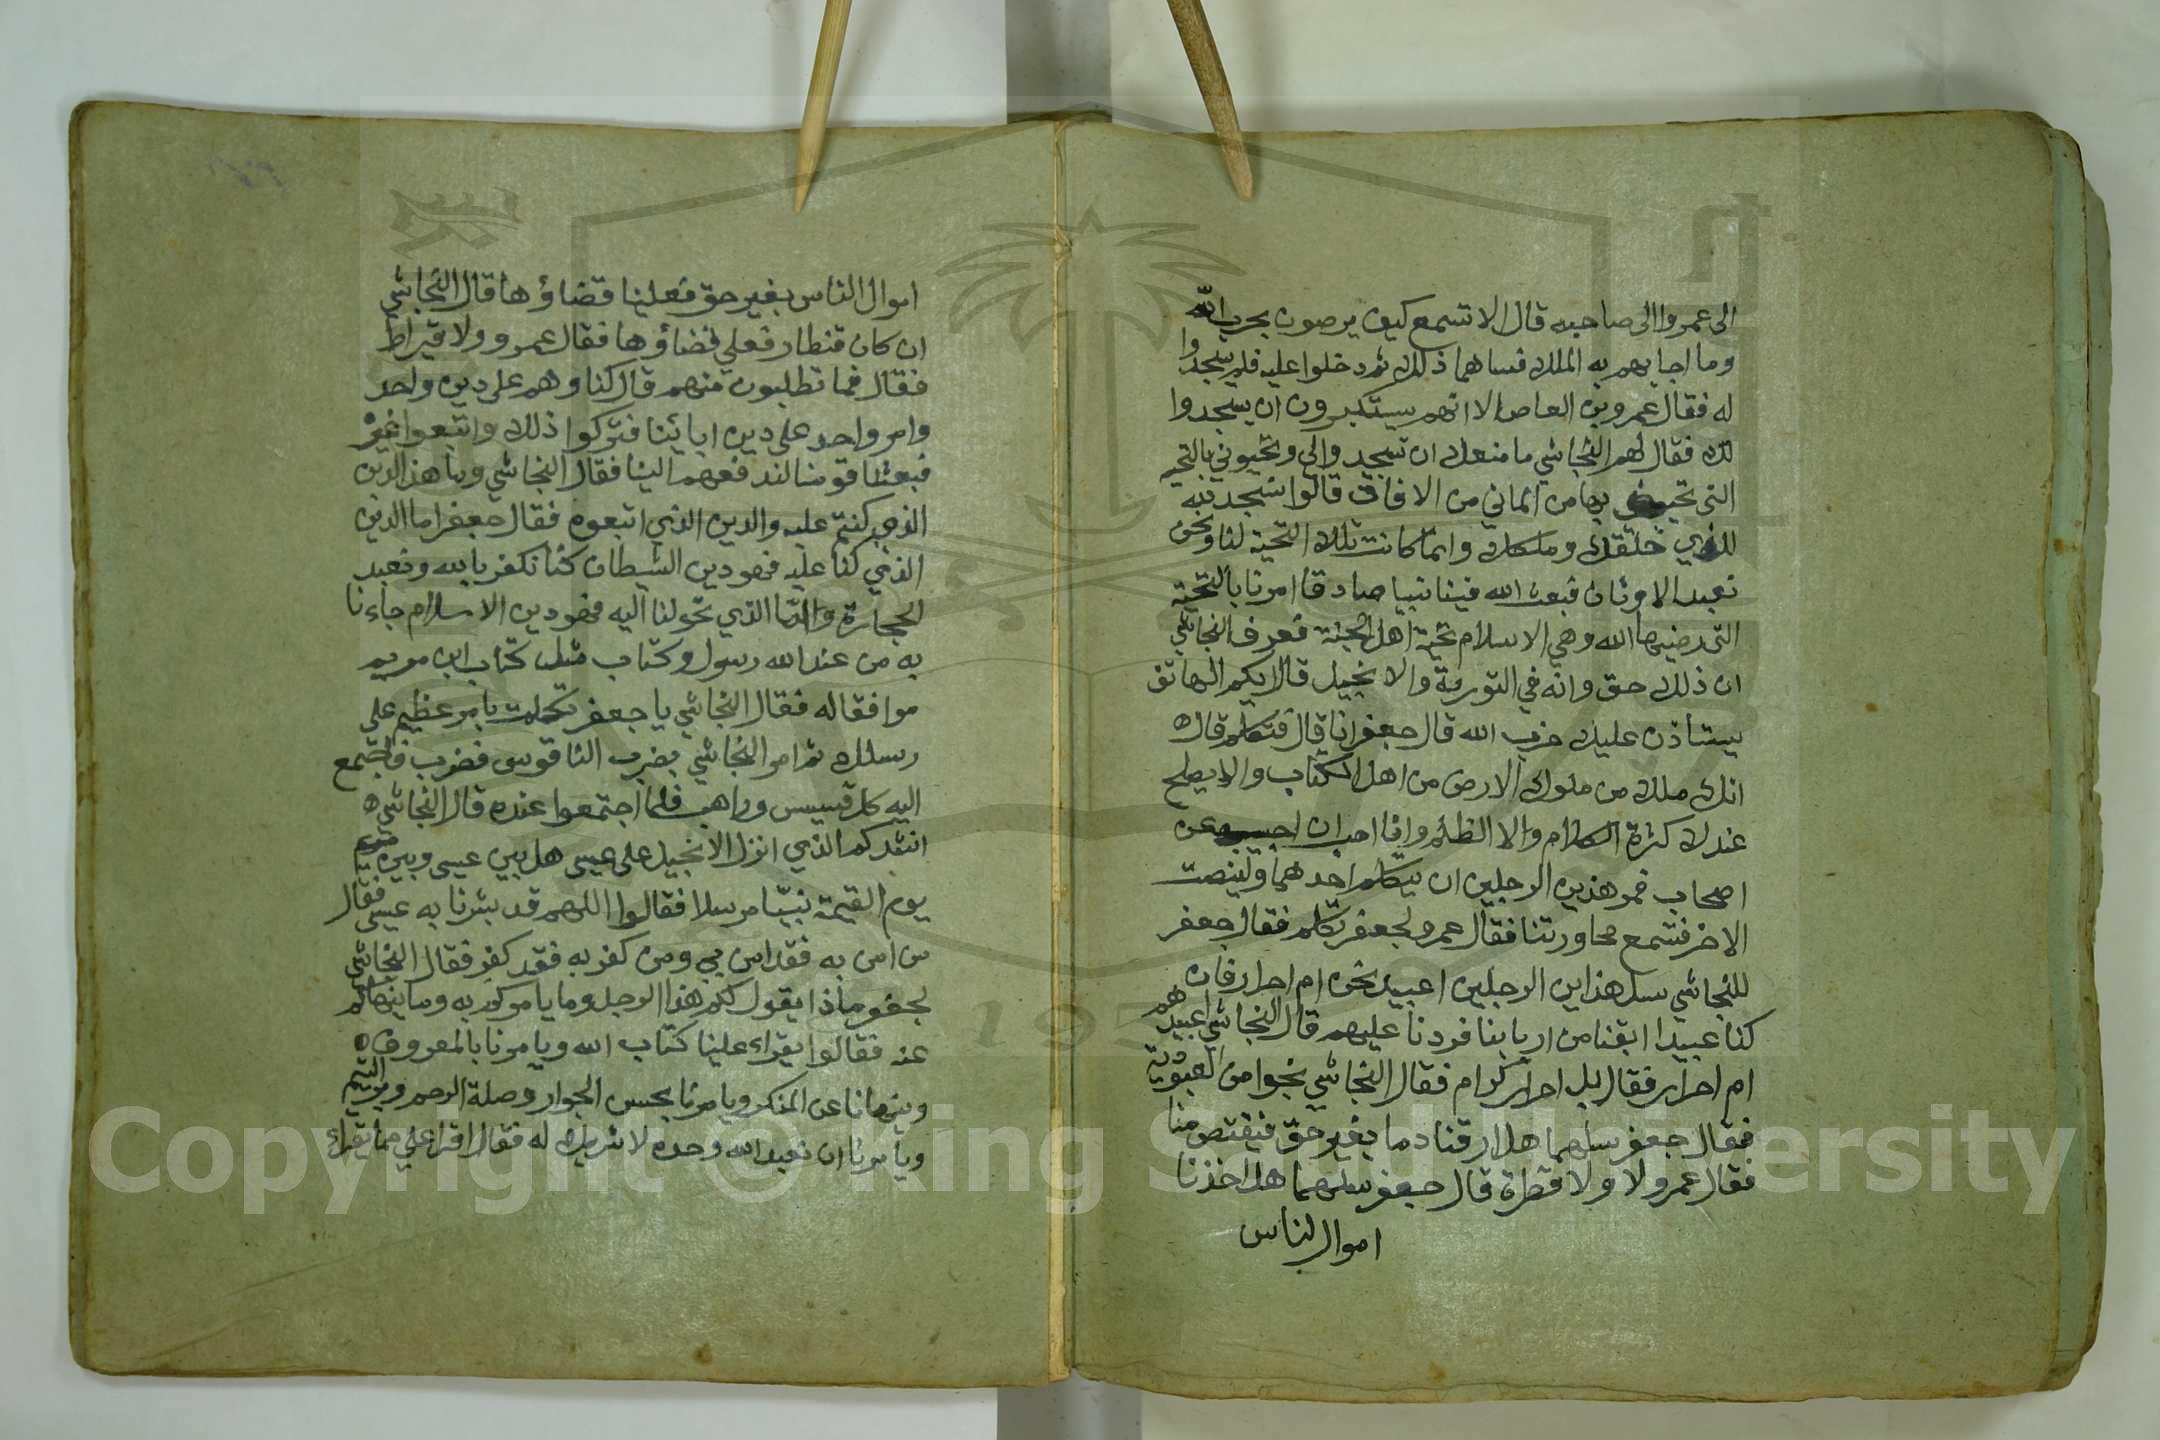 الى عمرو االى صاحبه قال الا تسمع كيف يرصون بحرب الله
وما اجابهم به الملك فساهما ذلك ثم دخلوا عليه فلم يسجدوا
له فقال عمرو بن العاص الا انهم يستكبرون ان يسجدوا
لك فقال لهم النجاشي ما منعك ان تسجدوا لي وتحيوني بالتحية
التى تحيني بها من اتاني من الافاق قالوا نسجد لله
للذي خلقك وملكك وانما كانت تلك التحية لنا ونحن
نعبد الاوثان فبعث الله فينا نبيا صادقا امرنا بالتحية
التى رضيها الله وهي الاسلام تحية اهل الجنة فعرف النجاشي
ان ذلك حق وانه في التورية والانجيل قال ايكم الهاتف
يستأذن عليك حزب الله قال جعفر انا قال فتكلم قال
انك ملك من ملوك الارض من اهل الكتاب والا يصلح
عندك كثرة الكلام والا الظلم وانا احب ان اجيب عن
اصحابي فمر هذين الرجلين ان يتكلم احدهما ولينصت
الاخر فتسمع محاورتنا فقال عمرو لجعفر تكلم فقال جعفر
للنجاشي سل هذاين الرجلين اعبيد نحن ام احرار فان
كنا عبيدا ابقنا من اربابنا فردنا عليهم قال النجاشي اعبيد هم
ام احرار فقال بل احرار كرام فقال النجاشي نجوا من العبودية
فقال جعفر سلهما هل ارقنا دما بغير حق فيقتص منا
فقال عمرو لا ولا قطرة قال جعفر سلهما هل اخذنا
اموال الناس
اموال الناس بغير حق فعلينا قضاؤها قال النجاشي
ان كان قنطار فعلي قضاؤها فقال عمرو ولا قيراط
فقال فما تطلبون منهم قال كنا وهم على دين واحد
وامر واحد على دين ابائنا فتركوا ذلك واتبعوا غيره
فبعثنا قومنا لندفعهم الينا فقال النجاشي وما هذا الدين
الذي كنتم عليه والدين الذي اتبعوه فقال جعفر اما الدين
الذي كنا عليه فهو دين الشيطان كنا نكفر بالله ونعبد
الحجارة واما الذي تحولنا اليه فهو دين الاسلام جاءنا
به من عند الله رسول وكتاب مثل كتاب ابن مريم
موافقا له فقال النجاشي يا جعفر تكلمت بامر عظيم على
رسلك ثم امر النجاشي بضرب الناقوس فضرب فاجتمع
اليه كل قسيس وراهب فلما اجتمعوا عنده قال النجاشي
انشدكم الذي انزل الانجيل على عيسى هل بين عيسى وبين
يوم القيمة نبيا مرسلا فقالوا اللهم قد بشرنا به عيسى فقال
من امن به فقد امن بي ومن كفر به فقد كفر فقال النجاشي
لجعفر ماذا يقول لكم هذا الرجل وما يامركم به وما ينهاكم
عنه فقالوا يقراء علينا كتاب الله ويامرنا بالمعروف
وينهانا عن المنكر ويامرنا بحسن الجوار وصلة الرحم وبر اليتيم
ويأمرنا ان نعبد الله وحده لا شريك له فقال اقرا علي مما يقراء
Copyright © King Saud University